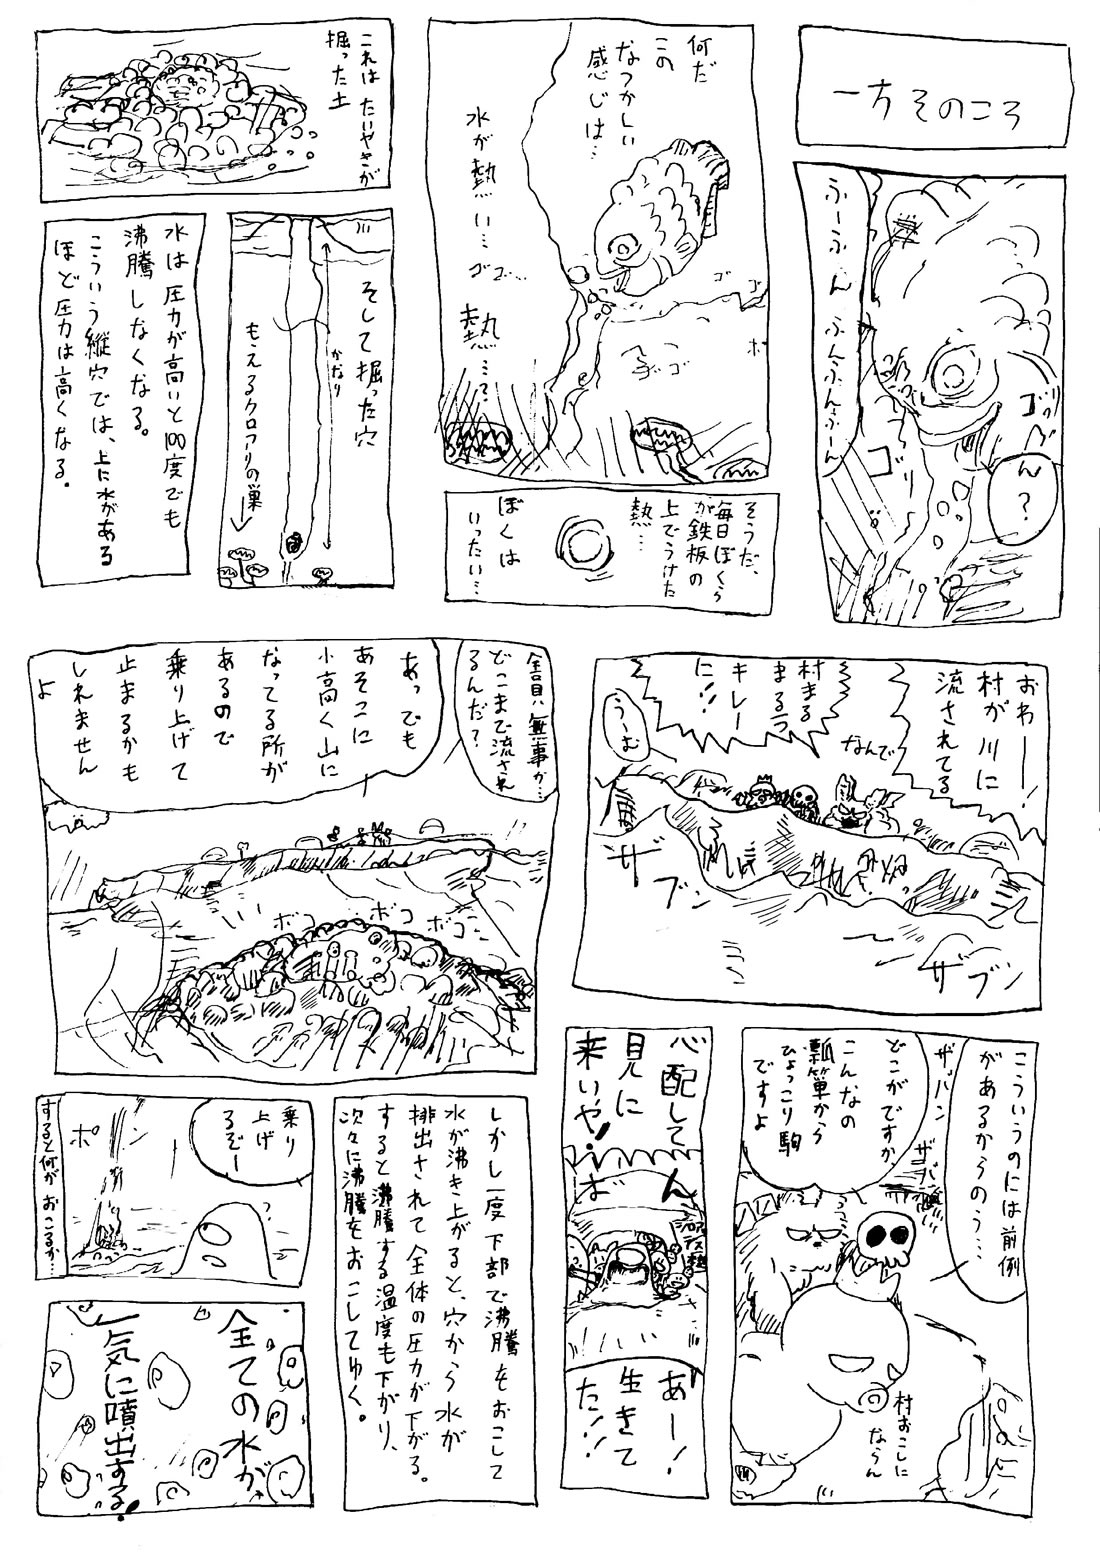 一方そのころ
ふーふん ふんふんふーん
ゴッ
ん?
ゴ
何だ
この
なつかしい
感じは…
水が熱い…
ゴゴ…
熱…?
ゴゴ
そうだ、
毎日ぼくら
が鉄板の
上でうけた
熱…
ぼくは
いったい…
これは たいやきが
掘った土
そして掘った穴
かなり
もえるクロアリの巣
水は圧力が高いと100度でも
沸騰しなくなる。
こういう縦穴では、上に水がある
ほど圧力は高くなる。
おわー!
村が川に
流されてる
なんで
村まる
まるう
キレー
に!!
うーむ
ザブン
ザブン
全員無事が…
どこまで流され
るんだ?
あっでも
あそこに
小高く山に
なってる所が
あるので
乗り上げて
止まるかも
しれません
よ
ボコ
ボコ
ボコ
こういうのには前例
があるからのう…
ザッパン
ザバ
どこがですか、
こんなの
瓢箪から
ひょっこり駒
ですよ
村おこしに
ならん
心配してん
見に
来いや!
あー!
生きて
た!!
しかし一度下部で沸騰をおこして
水が沸き上がると、穴から水が
排出されて全体の圧力が下がる。
すると沸騰する温度も下がり、
次々に沸騰をおこしてゆく。
乗り
上げ
るぞー
ボン
すると何がおこるか…
全ての水が
一気に噴出する!